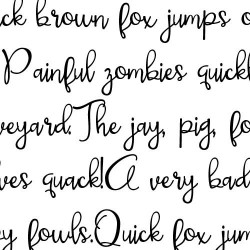 ck brown fox jumps o
Painful zombies quickl
veyard.The jay, pig, fo
ves quack!A very bad
ey fowls.Quick fox jum